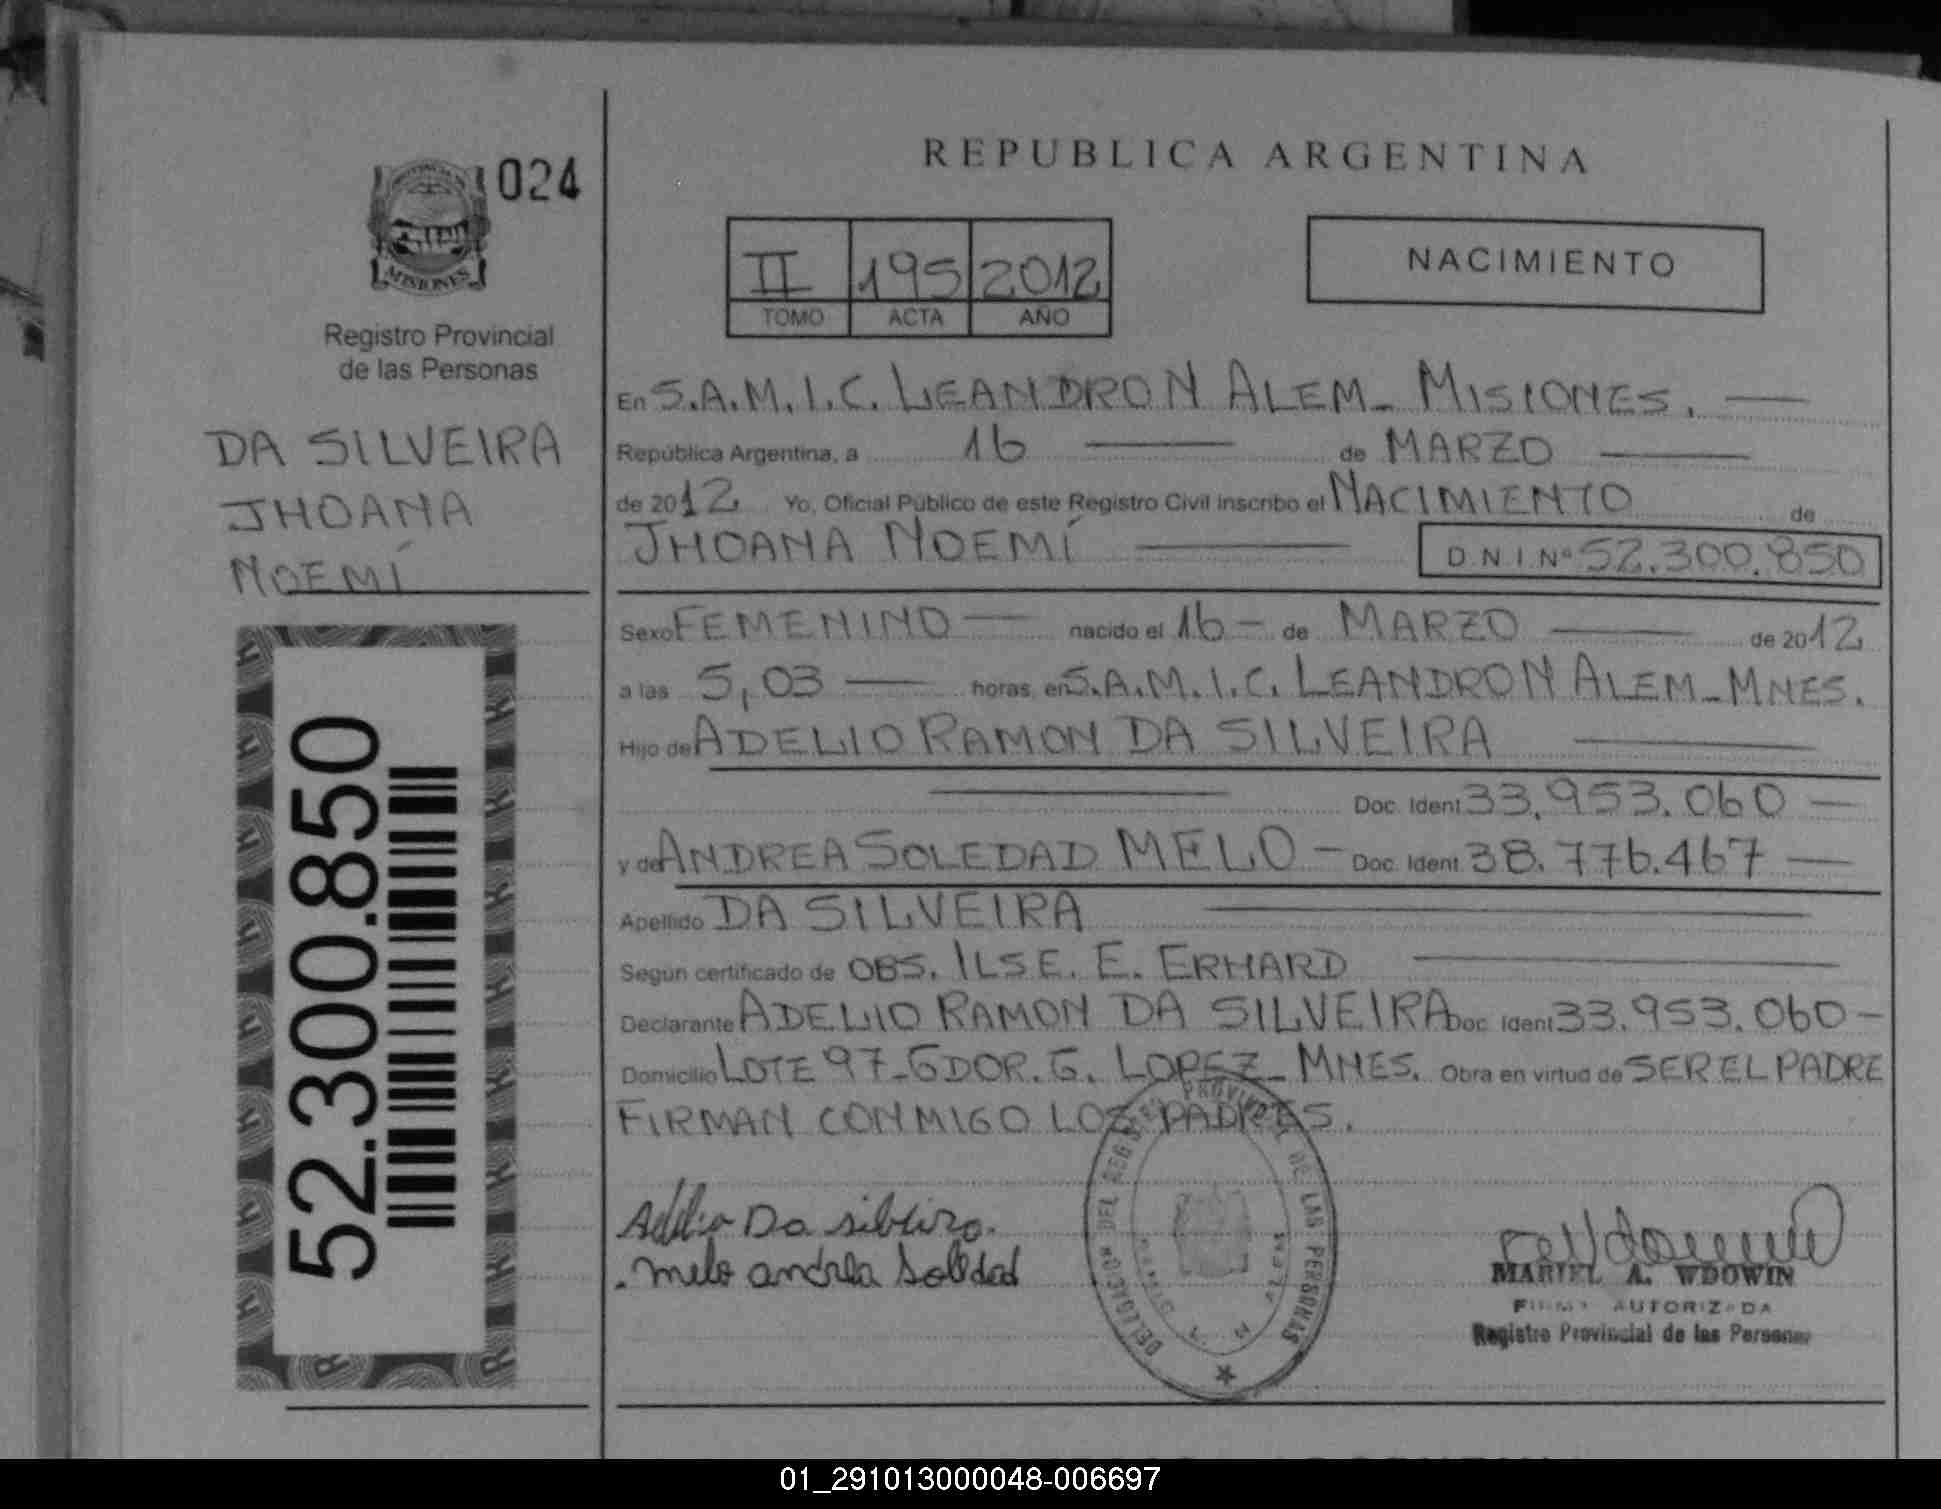 024
MISIONES
Registro Provincial
de las Personas
DA SILVEIRA
JHOANA
NOEMÍ
52.300.850
REPUBLICA ARGENTINA
II 195 2012
TOMO ACTA AÑO
NACIMIENTO
En S.A.M.I.C. LEANDRO N ALEM_ MISIONES.
República Argentina, a 16 de MARZO
de 2012 Yo, Oficial Público de este Registro Civil inscribo el NACIMIENTO de
JHOANA NOEMÍ D.N.I.Nº 52.300.850
Sexo FEMENINO nacido el 16 - de MARZO de 2012
a las 5,03 horas, en S.A.M.I.C. LEANDRO N ALEM_MNES.
Hijo de ADELIO RAMON DA SILVEIRA
Doc. Ident 33.953.060
y de ANDREA SOLEDAD MELO - Doc. Ident. 38.776.467
Apellido DA SILVEIRA
Según certificado de OBS. ILSE. E. ERHARD
Declarante ADELIO RAMON DA SILVEIRA Doc. Ident 33.953.060 -
Domicilio LOTE 97_GDOR. G. LOPEZ_ MNES. Obra en virtud de SER EL PADRE
FIRMAN CONMIGO LOS PADRES.
DELEGACION DEL REGISTRO PROVINCIAL DE LAS PERSONAS
melo andrea Soledad
MARIEL A. WDOWIN
FIRMA AUTORIZADA
Registro Provincial de las Personas
01_291013000048-006697